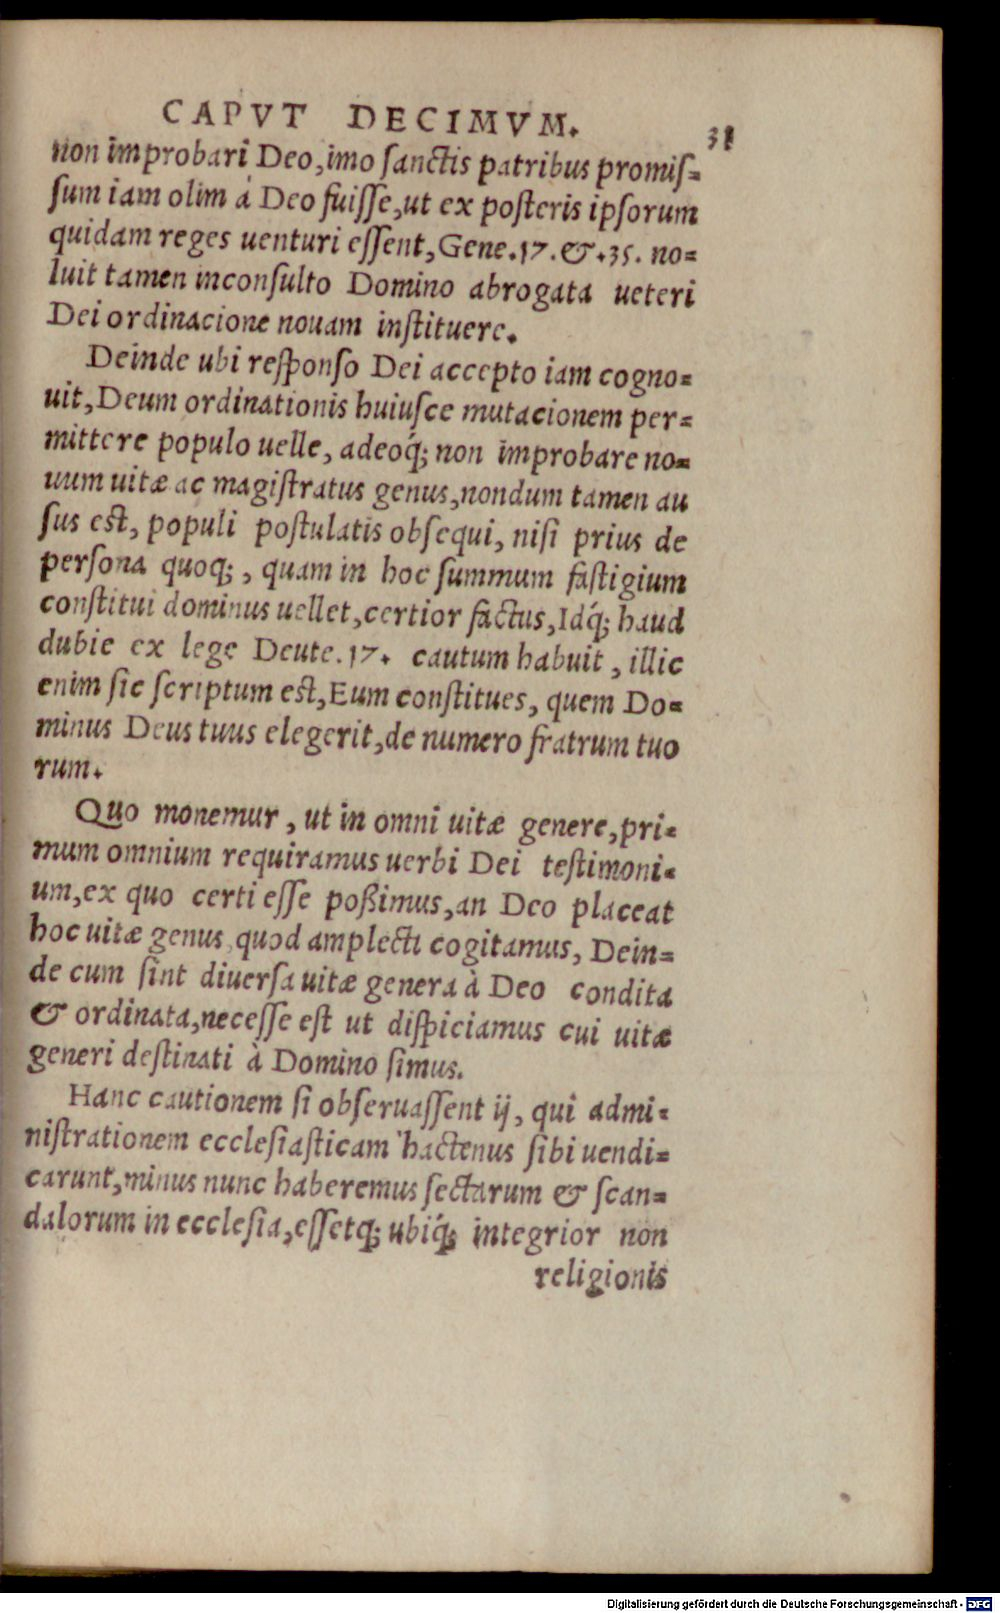 CAPVT DECIMVM. 31
non improbari Deo, imo sanctis patribus promis=
sum iam olim à Deo fuisse, ut ex posteris ipsorum
quidam reges uenturi essent, Gene.17. &.35. no=
luit tamen inconsulto Domino abrogata ueteri
Dei ordinacione nouam instituere.
Deinde ubi responso Dei accepto iam cogno=
uit, Deum ordinationis huiusce mutacionem per=
mittere populo uelle, adeoq́; non improbare no=
uum uitæ ac magistratus genus, nondum tamen au
sus est, populi postulatis obsequi, nisi prius de
persona quoq;, quam in hoc summum fastigium
constitui dominus uellet, certior factus, Idq́; haud
dubie ex lege Deute.17. cautum habuit, illic
enim sic scriptum est, Eum constitues, quem Do=
minus Deus tuus elegerit, de numero fratrum tuo
rum.
Quo monemur, ut in omni uitæ genere, pri=
mum omnium requiramus uerbi Dei testimoni=
um, ex quo certi esse poßimus, an Deo placeat
hoc uitæ genus, quod amplecti cogitamus, Dein=
de cum sint diuersa uitæ genera à Deo condita
& ordinata, necesse est ut dispiciamus cui uitæ
generi destinati à Domino simus.
Hanc cautionem si obseruassent ij, qui admi=
nistrationem ecclesiasticam hactenus sibi uendi=
carunt, minus nunc haberemus sectarum & scan=
dalorum in ecclesia, essetq; ubiq́; integrior non
religionis
Digitalisierung gefördert durch die Deutsche Forschungsgemeinschaft - DFG